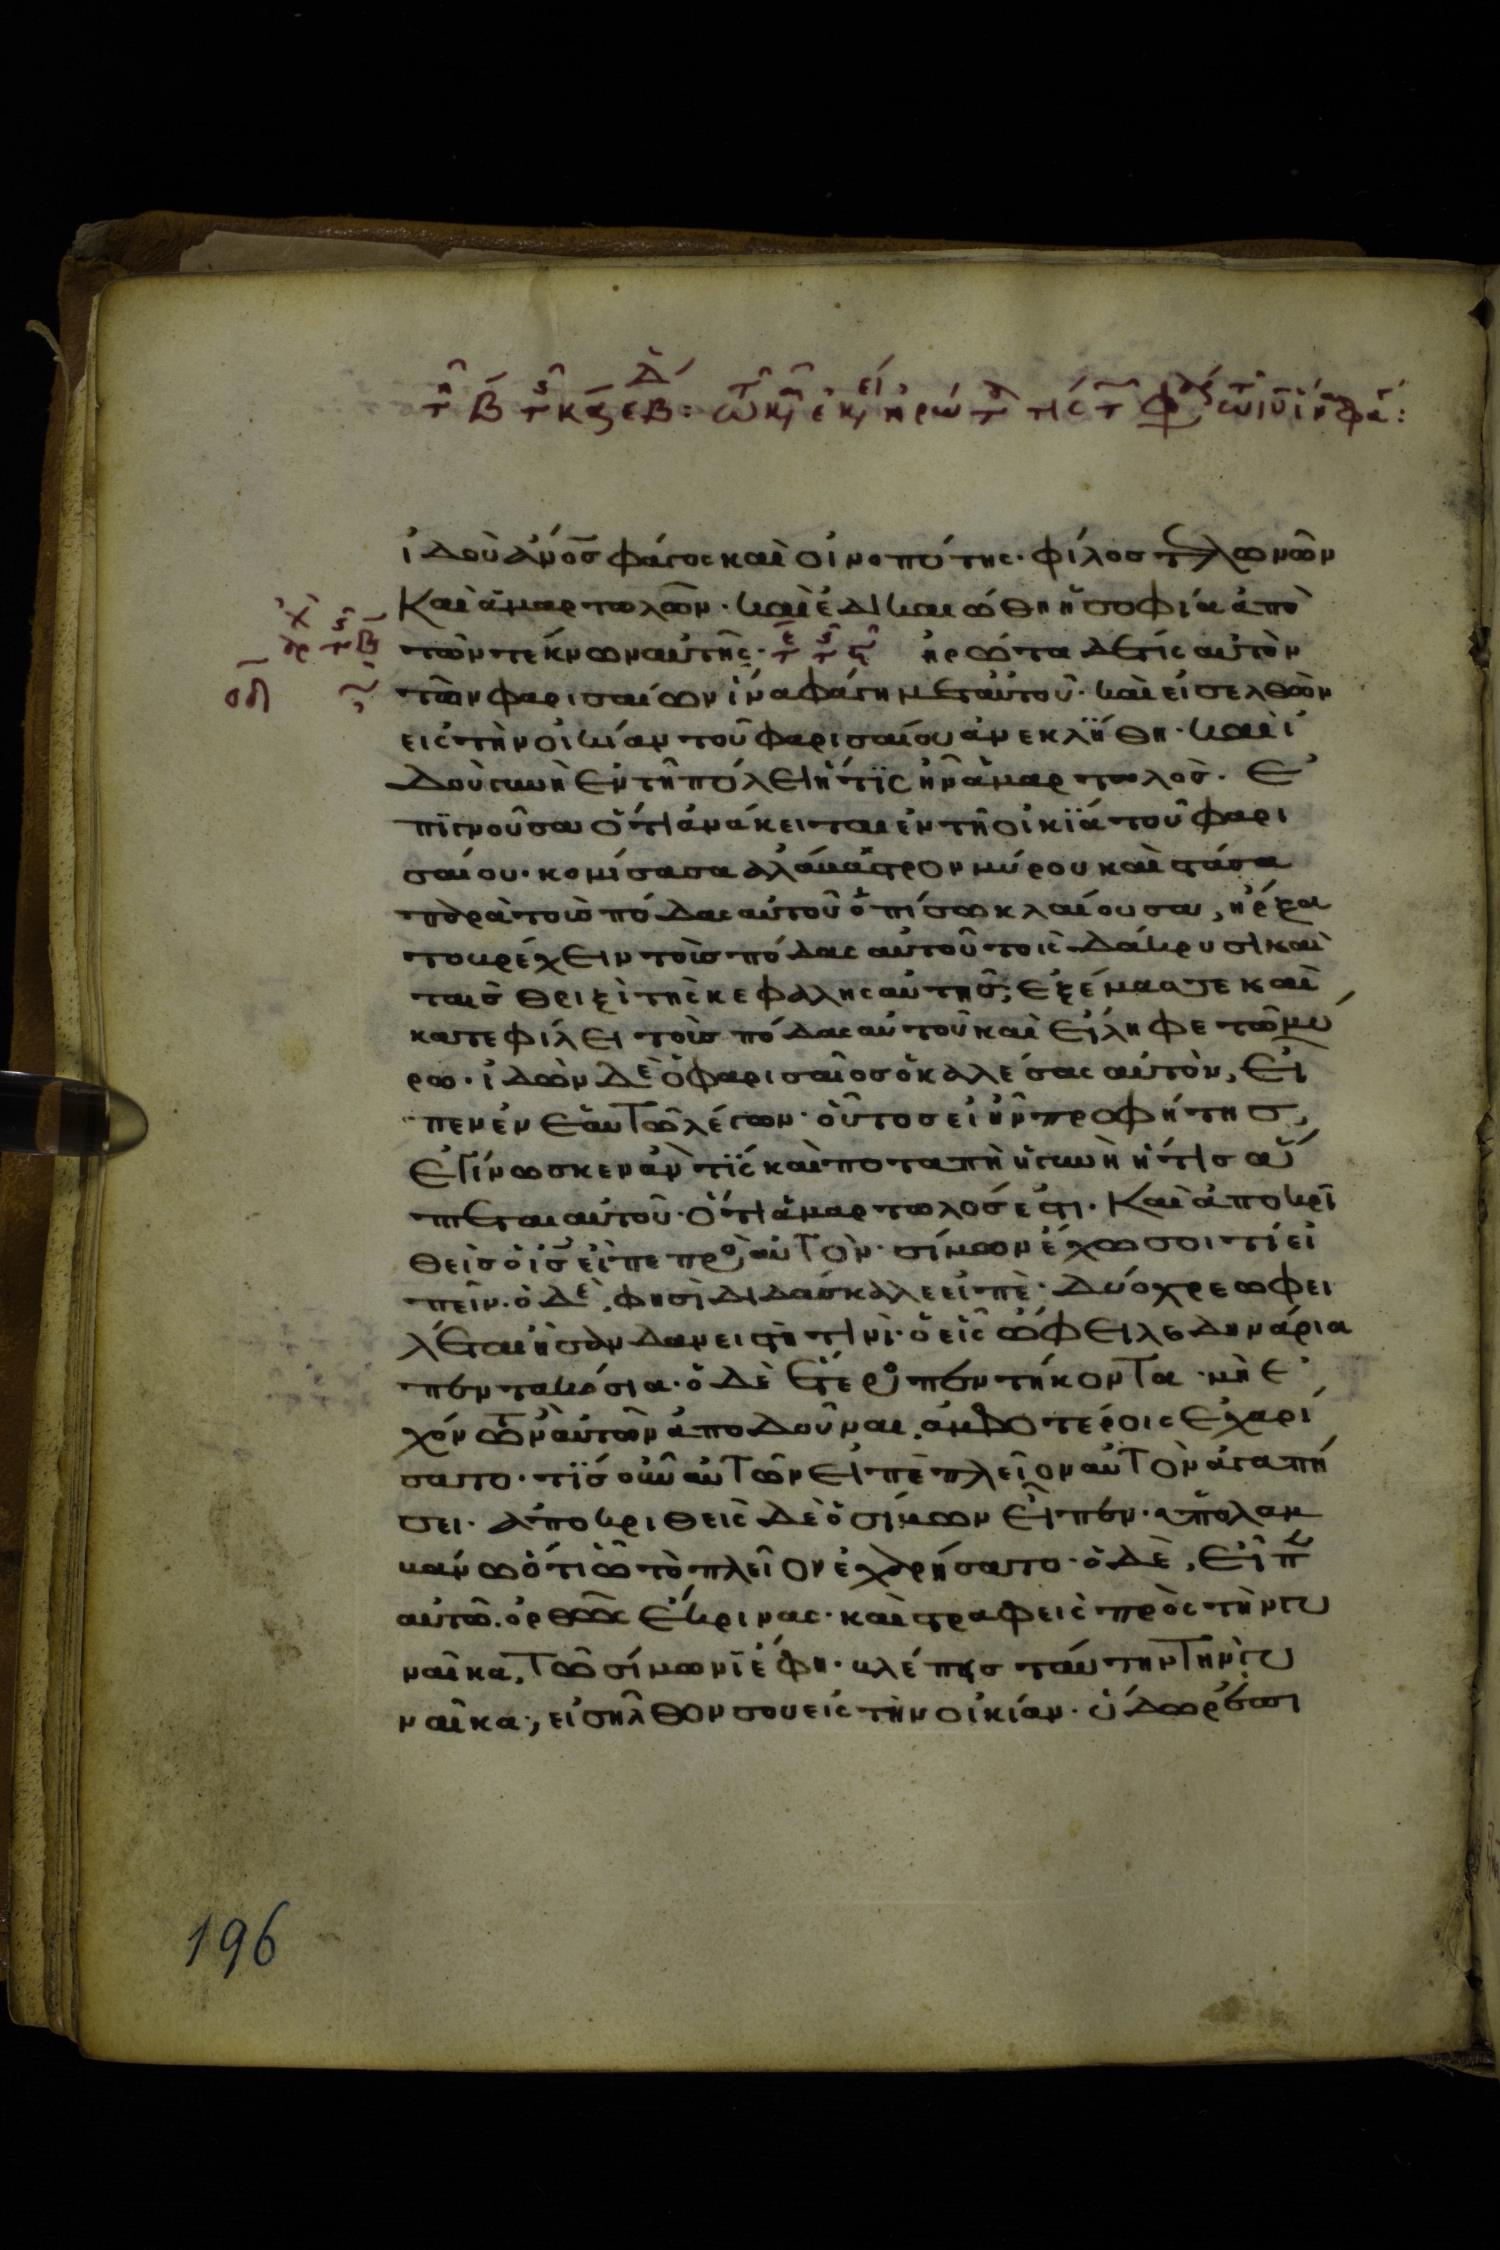 ἰδοὺ ἄνο̅σ φάγος καὶ οἰνοπότης· φίλος τελωνῶν
Καὶ ἁμαρτωλῶν· καὶ ἐδικαιώθη ἡ σοφία ἀπὸ
τῶν τέκνων αὐτῆς· ἠρώτα δέ τις αὐτὸν
τῶν φαρισαίων ἵνα φάγη μετ αὐτοῦ· καὶ εἰσελθὼν
εἰς τὴν οἰκίαν τοῦ φαρισαίου ἀνεκλήθη· καὶ ἰ
δοὺ γυνὴ ἐν τῇ πόλει ἥτϊς ἦν ἁμαρτωλὸς· Ἐ
πϊγνοῦσα ὅτι ἀνάκειται ἐν τῆ οἰκϊά τοῦ φαρι
σαίου· κομίσασα ἀλάβαστρον μύρου καὶ στάσα
παρὰ τοὺσ πόδας αὐτοῦ ὀπίσω κλαίουσα, ἤρξα
το βρέχειν τοὺσ πόδας αὐτοῦ τοις δάκρυσι καὶ
ταισ θριξὶ τῆς κεφαλης αὐτησ, ἐξέμασσε καὶ
κατεφίλει τοὺσ πόδας αὐτοῦ καὶ εἴληφε τῶ μύ
ρω· ἰδὼν δὲ ὁ φαρισαῖοσ ὁ καλέσας αὐτὸν, εἶ
πεν ἐν ἑαυτῶ λέγων· οὗτοσ εἰ ἦν προφήτησ,
ἐγίνωσκεν ἂν τϊς καὶ ποταπὴ ἡ γυνὴ ἥτισ ἅ
πτεται αὐτοῦ· ὅτι ἁμαρτωλόσ ἐστι· Καὶ ἀποκρι
θεὶσ ὁ ι̅σ̅ εἶπε πρὸς αὐτὸν· σίμων ἔχω σοι τί εἰ
πεῖν· ὁ δὲ, φησὶ διδάσκαλε εἰπὲ· δύο χρεωφει
λέται ἦσαν δανειστῆ τινὶ· ὁ εἷς ὤφειλε δηνάρια
πεντακόσια· ὁ δὲ ἕτερος πεντήκοντα· μὴ ἐ
χόντων αὐτῶν ἀποδοῦναι, ἀμφοτέροις ἐχαρί
σατο· τϊς οὖν αὐτῶν εἰπὲ πλεῖον αὐτὸν ἀγαπή
σει· ἀποκριθεὶς δὲ ὁ σίμων εἶπεν· ὑπολαμ
βάνω ὅτι ὧ τὸ πλεῖον ἐχαρήσατο· ὁ δὲ, εἶπ
αὐτῶ· ὀρθῶς ἔκρινας· καὶ στραφεὶς πρὸς τὴν γυ
ναῖκα, τῶ σίμωνϊ ἔφη· βλέπεισ ταύτην τὴν γυ
ναῖκα; εἰσῆλθον σου εἰς τὴν οἰκίαν· ὕδωρ ἐπι
196